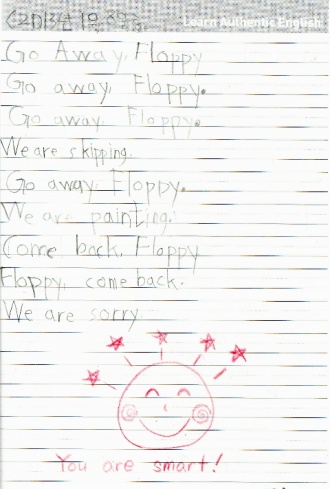 Learn Authentic English
Go Away, Floppy
Go away, Floppy.
Go away, Floppy.
We are skipping.
Go away, Floppy.
We are painting.
Come back, Floppy
Floppy, come back.
We are sorry
You are smart!